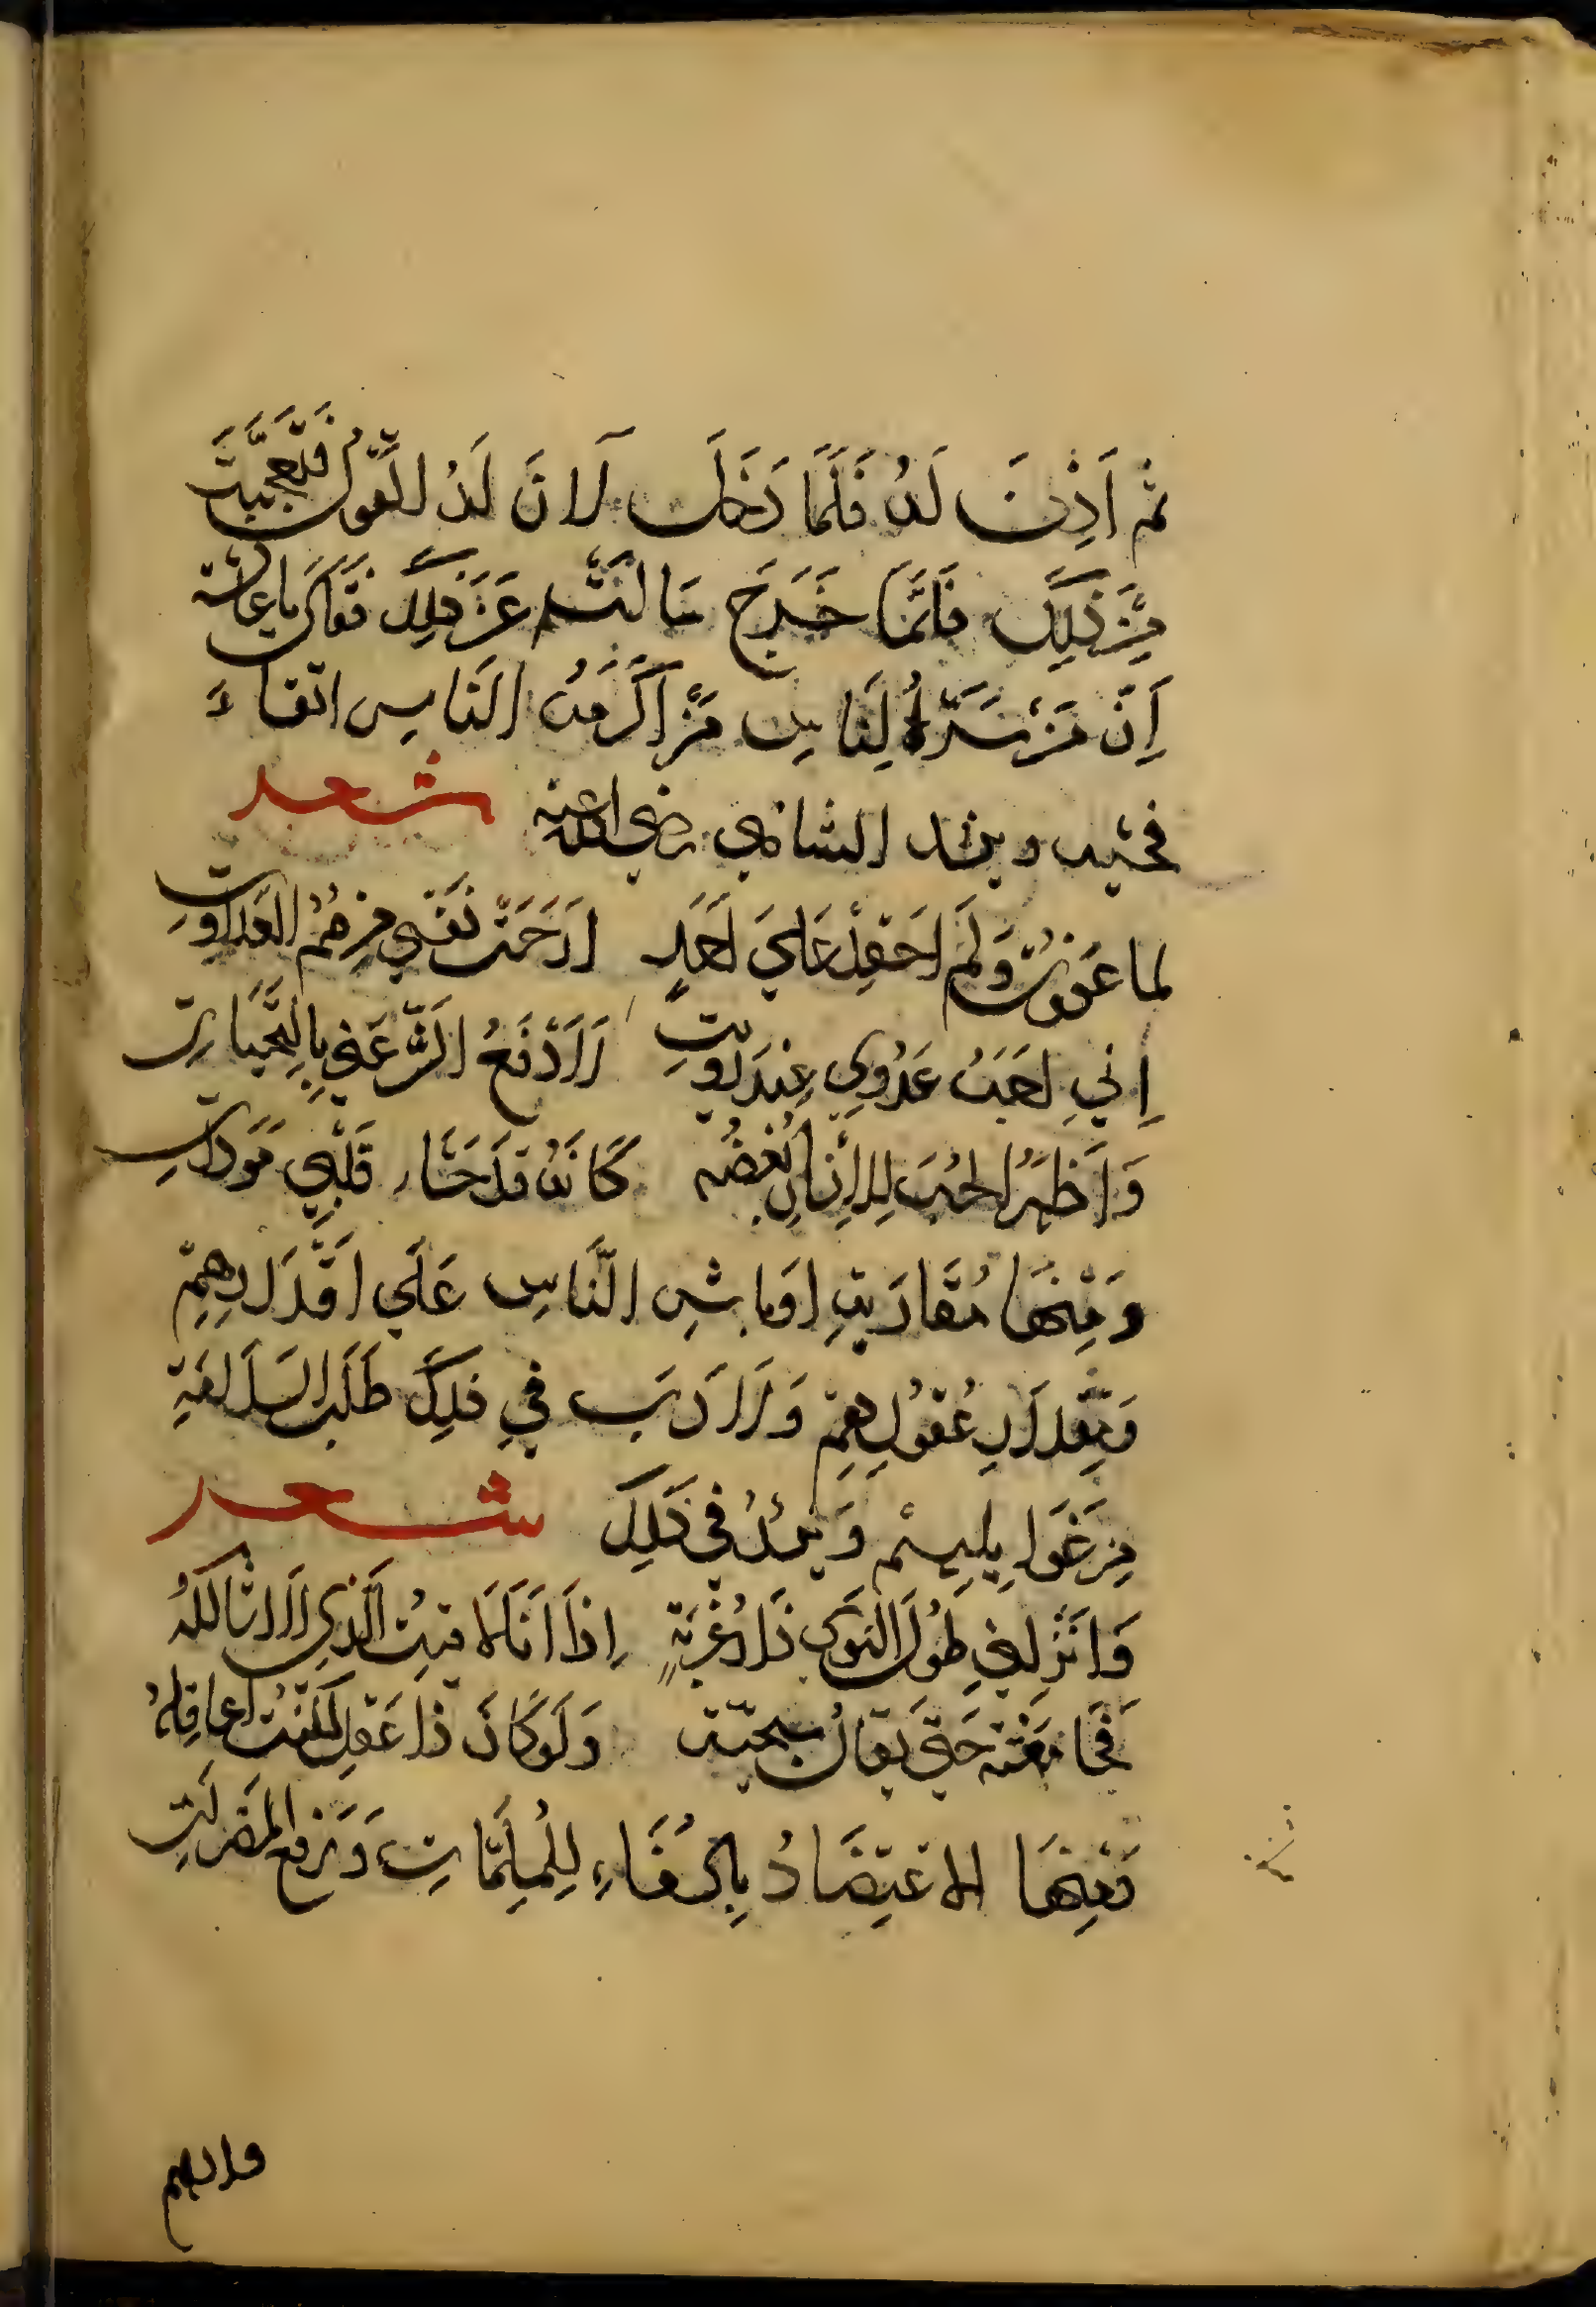 ثم اَذِنَ لَهُ فَلَمَّا دَخَل لَانَ لَهُ القَول فَتَعَجَّبت
مِن ذَلِكَ فَلَمَّا خَرَجَ سَالتُه عَن ذلِكَ فقال يا عائشة
اِنَّ مَن شَرّ النَاسِ مَن اَكرَمَهُ النَاسِ اتقاءَ
فحشه وينشد الشافعي رضي الله عنه شعر
لما عَفَوتُ وَلَم اَحقِد عَلَي اَحَدٍ اَرَحتُ نَفسِي مِن هَمّ العَدَاوَتِ
اِنِي اُحَيّ عَدُوِي عِندَ رُويتِهِ لَاَدفَعُ الشَّر عَنِي بِالتَّحِيَاتِ
وَاُظهِرُ الحُبَ لِلاِنسَانِ اُبغِضُه كَانَه قَد حَشَا قَلبِي مَوَدَاتِ
وَمِنهَا مُقَارَبَتِ اَوباشِ النَّاسِ عَلَي اَقدَارِهِم
وَبِقَدَارِ عُقُولِهِم وَلَا رَيبَ فِي ذلِكَ طَلَب السَلَامَةِ
مِن غَوَايِلِهِم وَيُنشِدُ فِي ذَلِكَ شعر
وَاَنزَلَنِي طُولَ النَوَي دَارَ غُربَةٍ اِذَا اَنَا لَاقَيتُ الَّذِي لَا اُشَاكِلُهُ
فَحَامَقتُه حَتَّي يُقَال سَجِيَّة وَلَو كَانَ ذَا عَقلٍ لَكُنتُ اُعَاقِلُهُ
وَمِنهَا الاعتِضَادُ بِالسُفَهَاءِ لِلمُلِمَّاتِ وَدَفع المضَرَاتِ